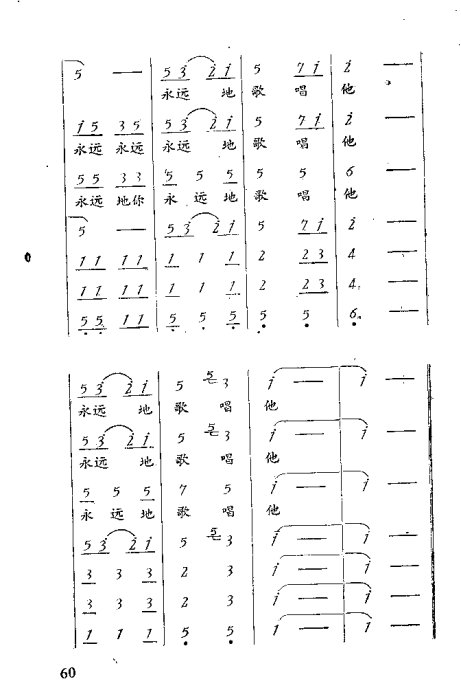 5 — 5 3 2 1 5 7 1 2 —
永远 地 歌 唱 他
1 5 3 5 5 3 2 1 5 7 1 2 —
永远 永远 永远 地 歌 唱 他
5 5 3 3 5 5 5 5 5 6 —
永远 地你 永 远 地 歌 唱 他
5 — 5 3 2 1 5 7 1 2 —
1 1 1 1 1 1 1 2 2 3 4 —
1 1 1 1 1 1 1 2 2 3 4 —
5 5 1 1 5 5 5 5 5 6 —
5 3 2 1 5 5 3 1 — 1 —
永远 地 歌 唱 他
5 3 2 1 5 5 3 1 — 1 —
永远 地 歌 唱 他
5 5 5 7 5 1 — 1 —
永 远 地 歌 唱 他
5 3 2 1 5 5 3 1 — 1 —
3 3 3 2 3 1 — 1 —
3 3 3 2 3 1 — 1 —
1 1 1 5 5 1 — 1 —
60